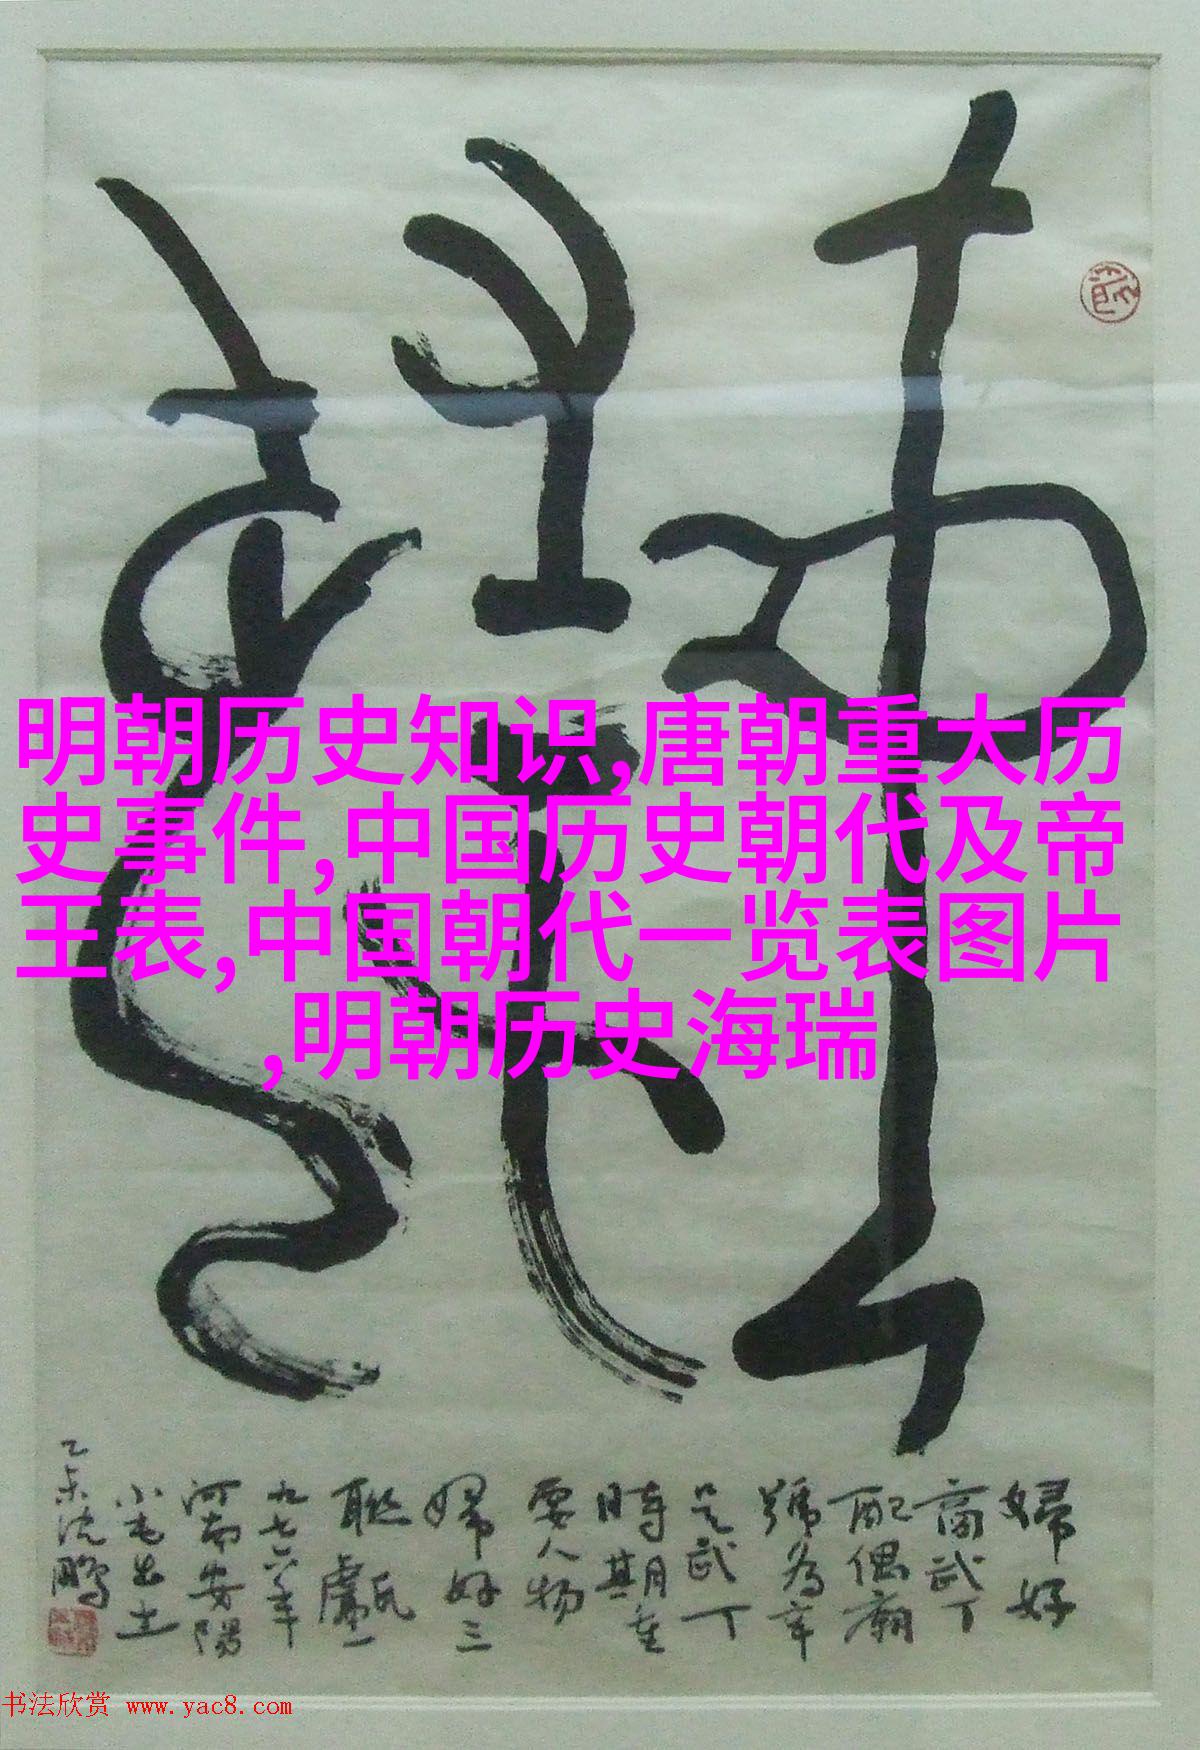 明朝历史知识,唐朝重大历
史事件,中国历史朝代及帝
王表,中国朝代一览表图片
,明朝历史海瑞
婦好
商武丁
配偶廟
號為辛
是武丁
時期重
要人物
婦好三
聯甗一
九七六年
河南安陽
小屯出土
乙未沈鵬
书法欣赏 www.yac8.com